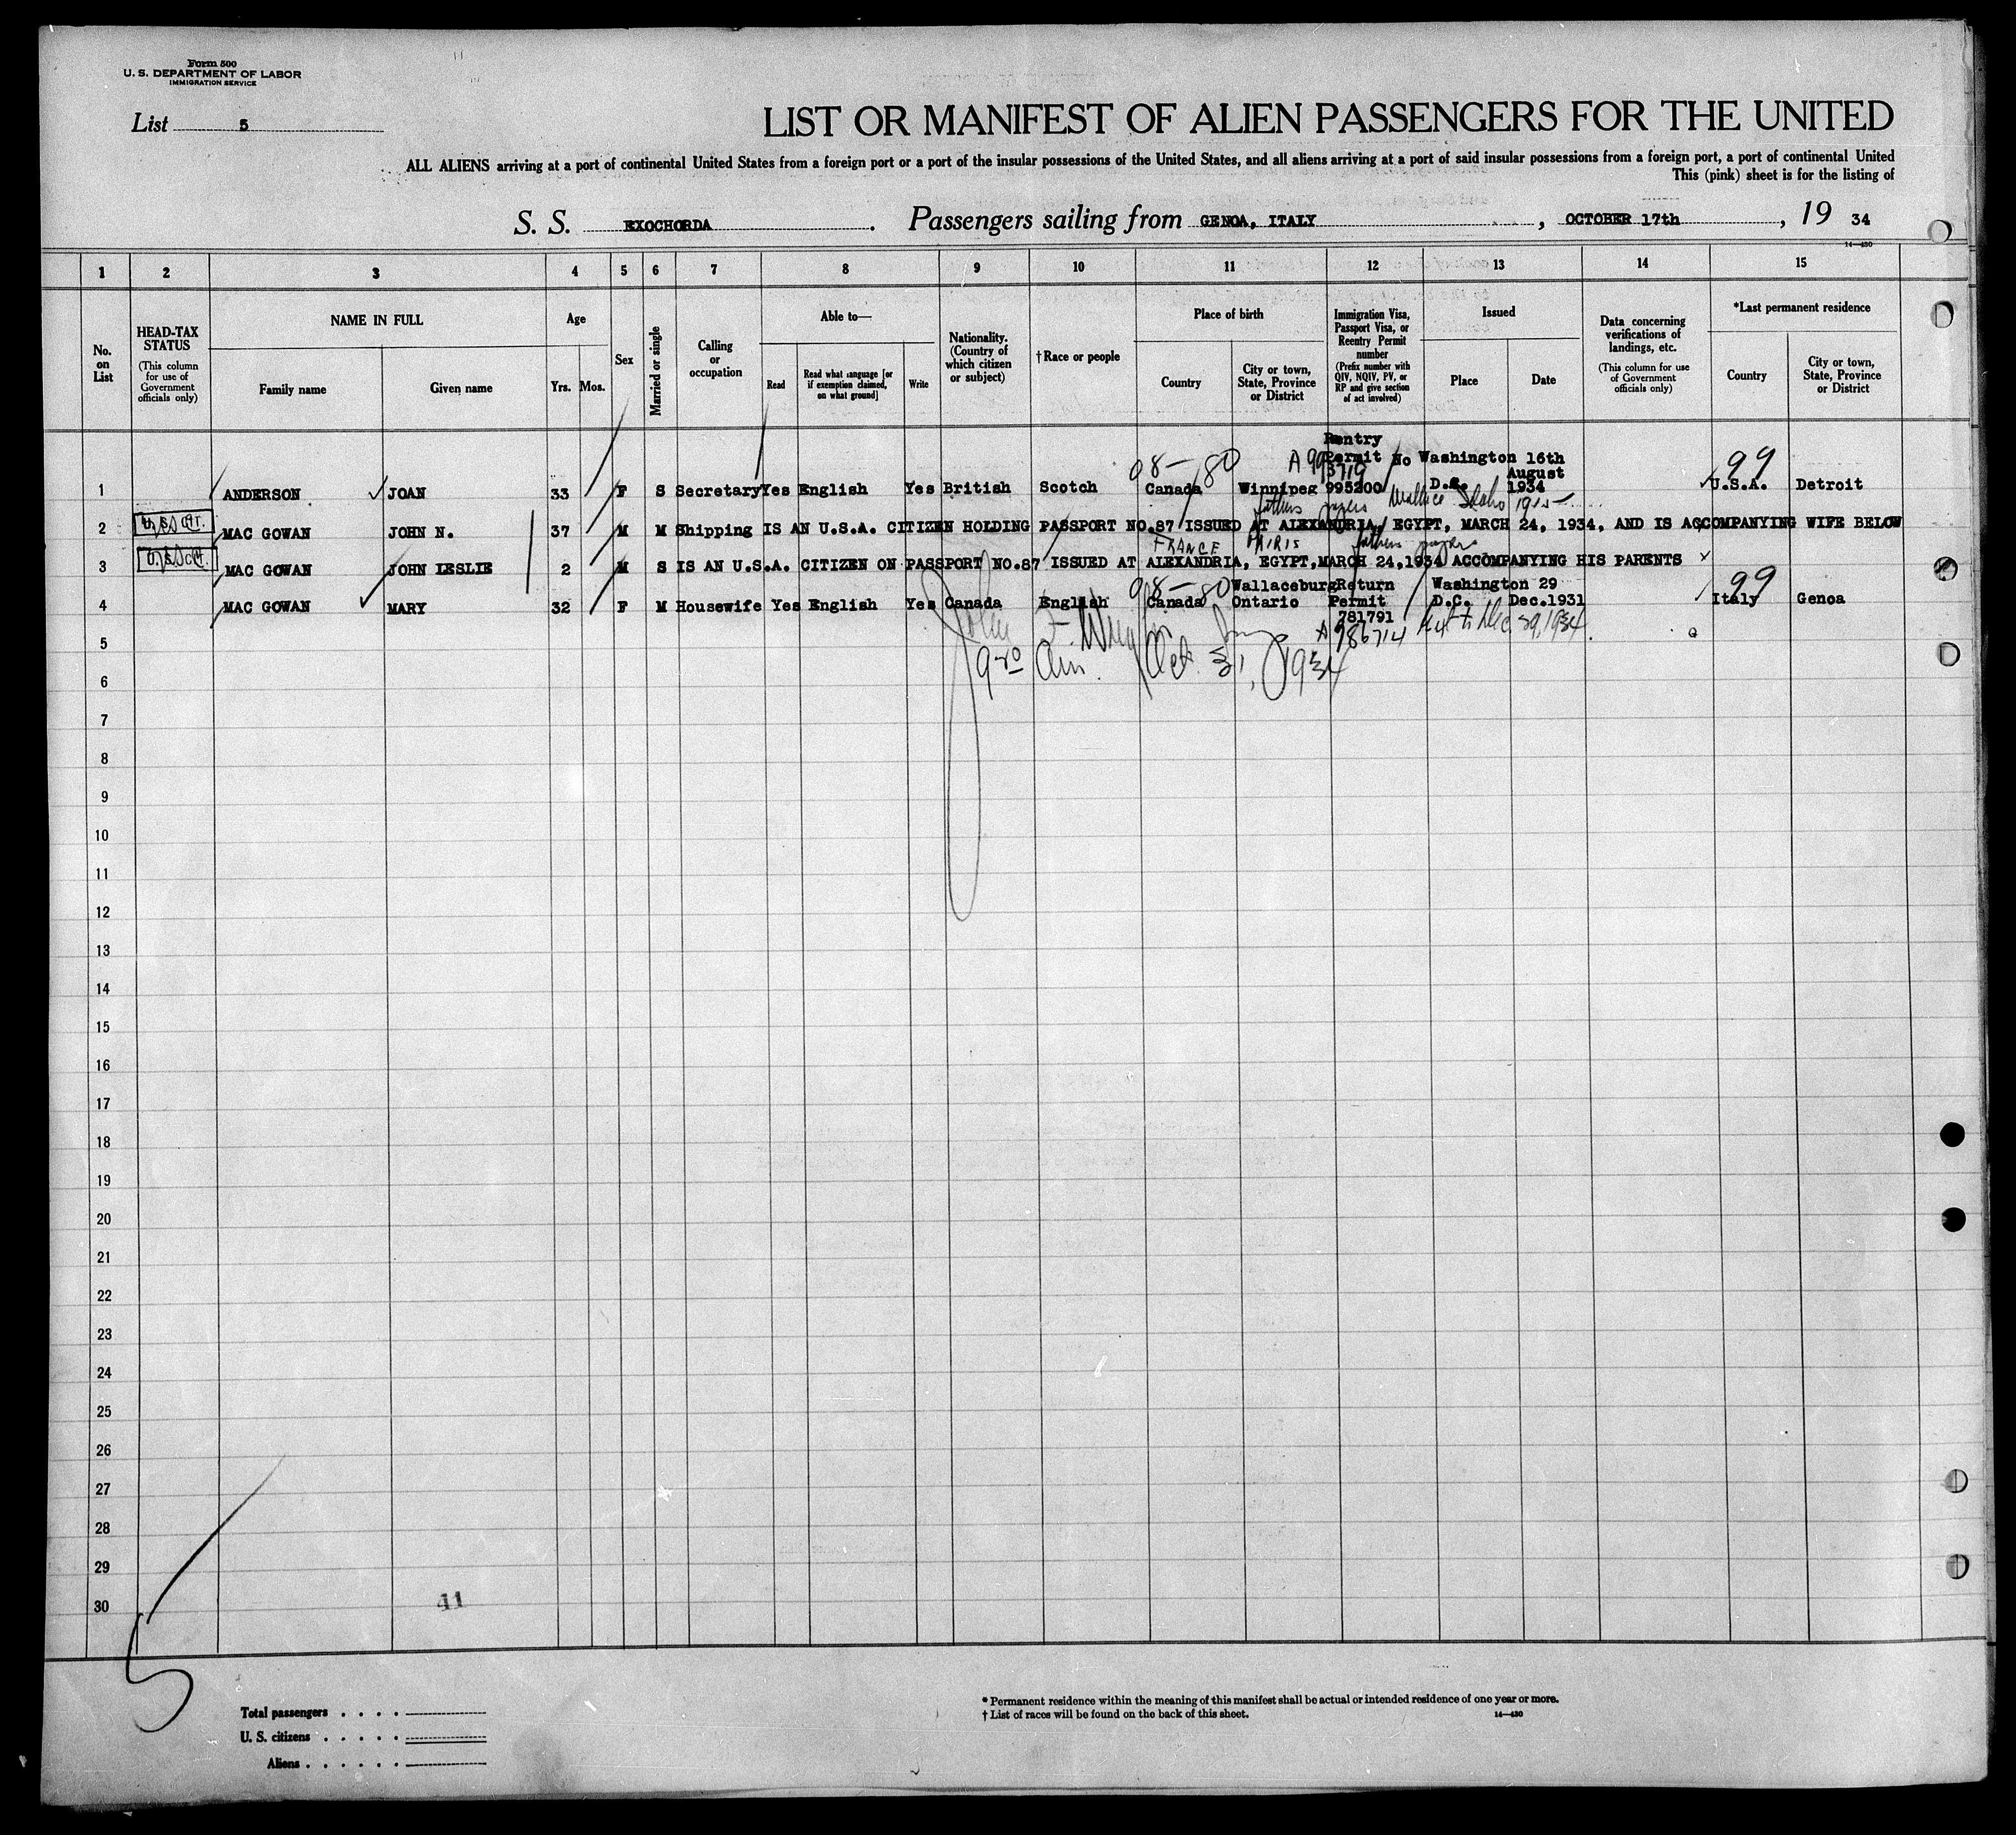 Form 500
U. S. DEPARTMENT OF LABOR
IMMIGRATION SERVICE
List 5
LIST OR MANIFEST OF ALIEN PASSENGERS FOR THE UNITED
ALL ALIENS arriving at a port of continental United States from a foreign port or a port of the insular possessions of the United States, and all aliens arriving at a port of said insular possessions from a foreign port, a port of continental United
This (pink) sheet is for the listing of
S. S. EXOCHORDA. Passengers sailing from GENOA, ITALY, OCTOBER 17th, 19 34
14—430
1 2 3 4 5 6 7 8 9 10 11 12 13 14 15
No. on List
HEAD-TAX STATUS
(This column for use of Government officials only)
NAME IN FULL
Family name Given name
Age
Yrs. Mos.
Sex
Married or single
Calling or occupation
Able to—
Read
Read what language [or if exemption claimed, on what ground]
Write
Nationality. (Country of which citizen or subject)
†Race or people
Place of birth
Country
City or town, State, Province or District
Immigration Visa, Passport Visa, or Reentry Permit number
(Prefix number with QIV, NQIV, PV, or RP and give section of act involved)
Issued
Place Date
Data concerning verifications of landings, etc.
(This column for use of Government officials only)
*Last permanent residence
Country
City or town, State, Province or District
Rentry
98—80 Permit No Washington 16th 99
August
1 ANDERSON JOAN 33 F S Secretary Yes English Yes British Scotch Canada Winnipeg 995200 D.C. 1934 U.S.A. Detroit
fathers papers Wallace Idaho
2 U.S. MAC GOWAN JOHN N. 37 M M Shipping IS AN U.S.A. CITIZEN HOLDING PASSPORT NO.87 ISSUED AT ALEXANDRIA, EGYPT, MARCH 24, 1934, AND IS ACCOMPANYING WIFE BELOW
FRANCE PAIRIS fathers papers
3 U.S. MAC GOWAN JOHN LESLIE 2 M S IS AN U.S.A. CITIZEN ON PASSPORT NO.87 ISSUED AT ALEXANDRIA, EGYPT, MARCH 24,1934 ACCOMPANYING HIS PARENTS
98—80 Wallaceburg Return Washington 29 99
4 MAC GOWAN MARY 32 F M Housewife Yes English Yes Canada English Canada Ontario Permit D.C. Dec.1931 Italy Genoa
781791
A 986714 Ext to Dec. 29, 1934
5
Oct. 31, 1934
6
7
8
9
10
11
12
13
14
15
16
17
18
19
20
21
22
23
24
25
26
27
28
29
30
41
5
Total passengers
U. S. citizens
Aliens
* Permanent residence within the meaning of this manifest shall be actual or intended residence of one year or more.
† List of races will be found on the back of this sheet.
14—430